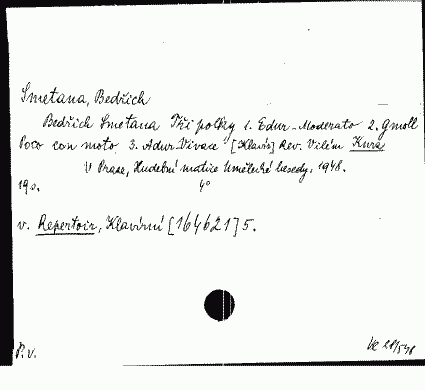 Smetana, Bedřich
Bedřich Smetana Tři polky 1. Edur - Moderato 2. gmoll
Poco con moto 3. Adur - Vivace [Klavír] Rev. Vilém Kurz
V Praze, Hudební matice Umělecké besedy, 1948.
19 s. 4°
v. Repertoir, Klavírní [164621] 5.
P. v.